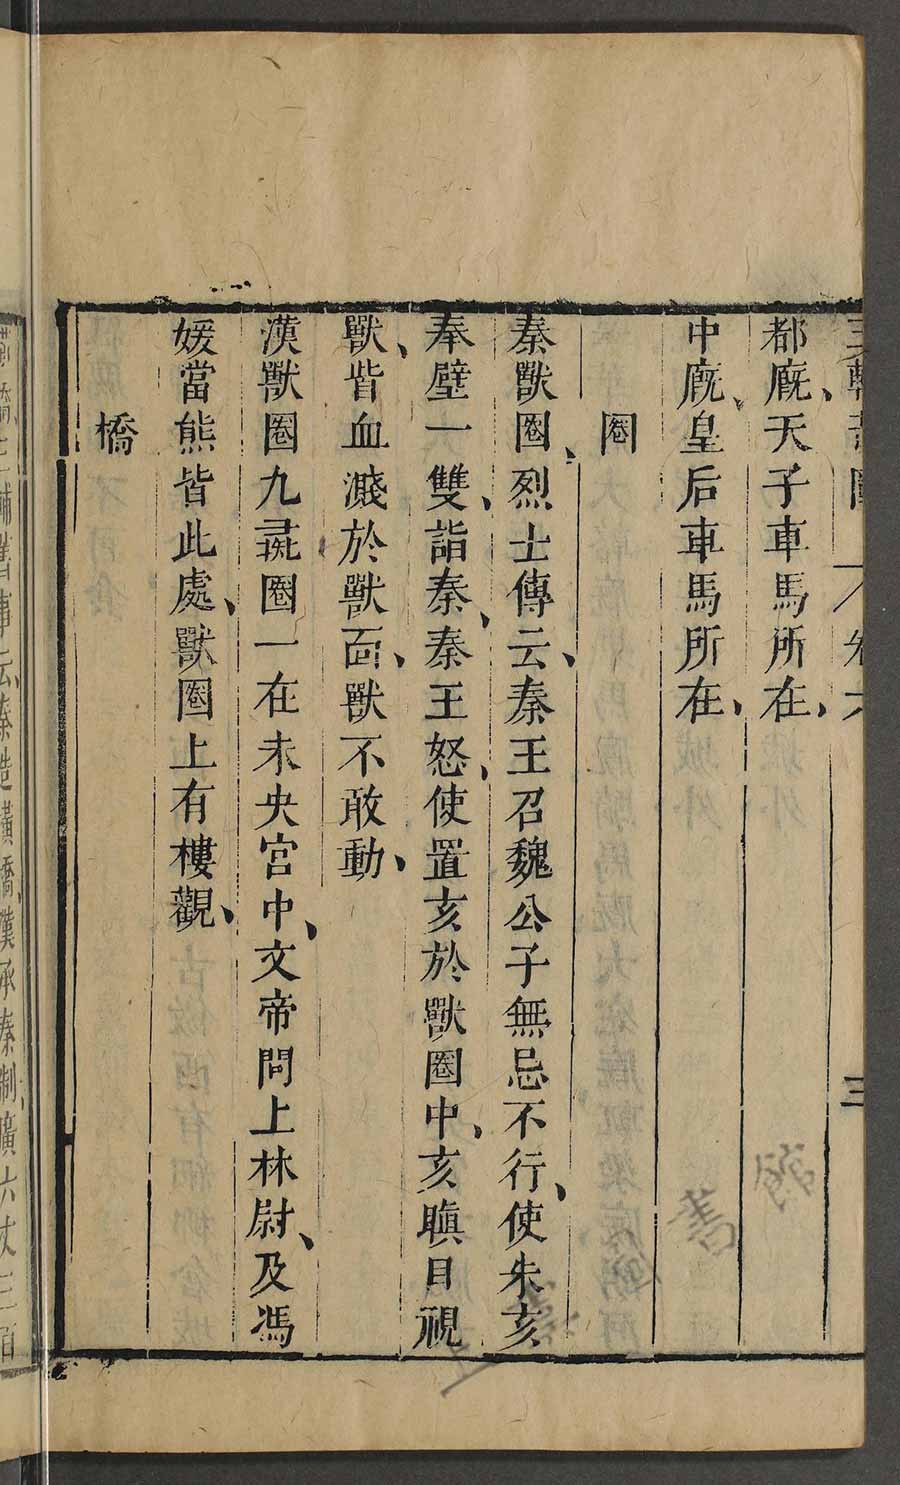 三輔黃圖 卷六 三
都廐、天子車馬所在、
中廐、皇后車馬所在、
圈
秦獸圈、烈士傳云、秦王召魏公子無忌不行、使朱亥
奉璧一雙、詣秦、秦王怒、使置亥於獸圈中、亥瞋目視
獸、眥血濺於獸面、獸不敢動、
漢獸圈九彘圈一在未央宮中、文帝問上林尉、及馮
媛當熊皆此處、獸圈上有樓觀、
橋